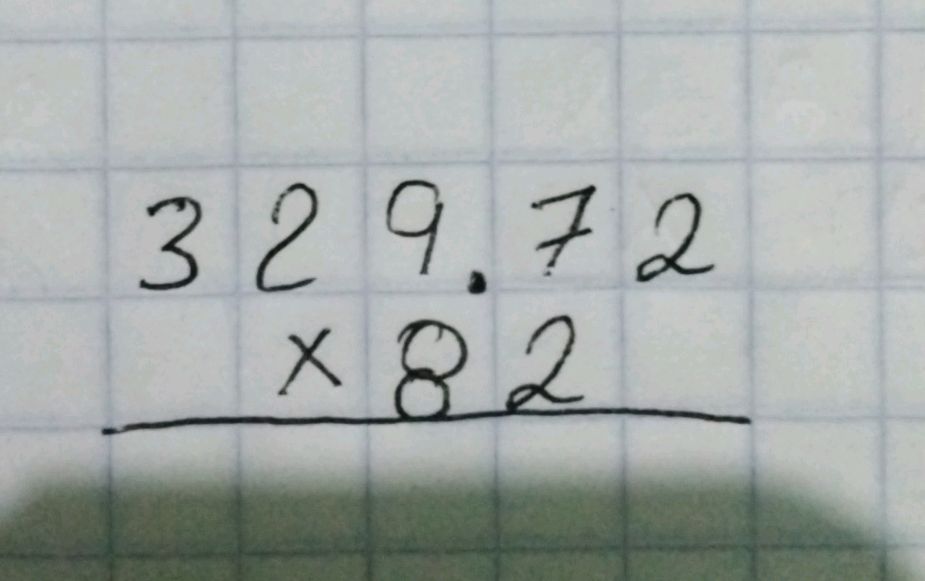 329.72
×82